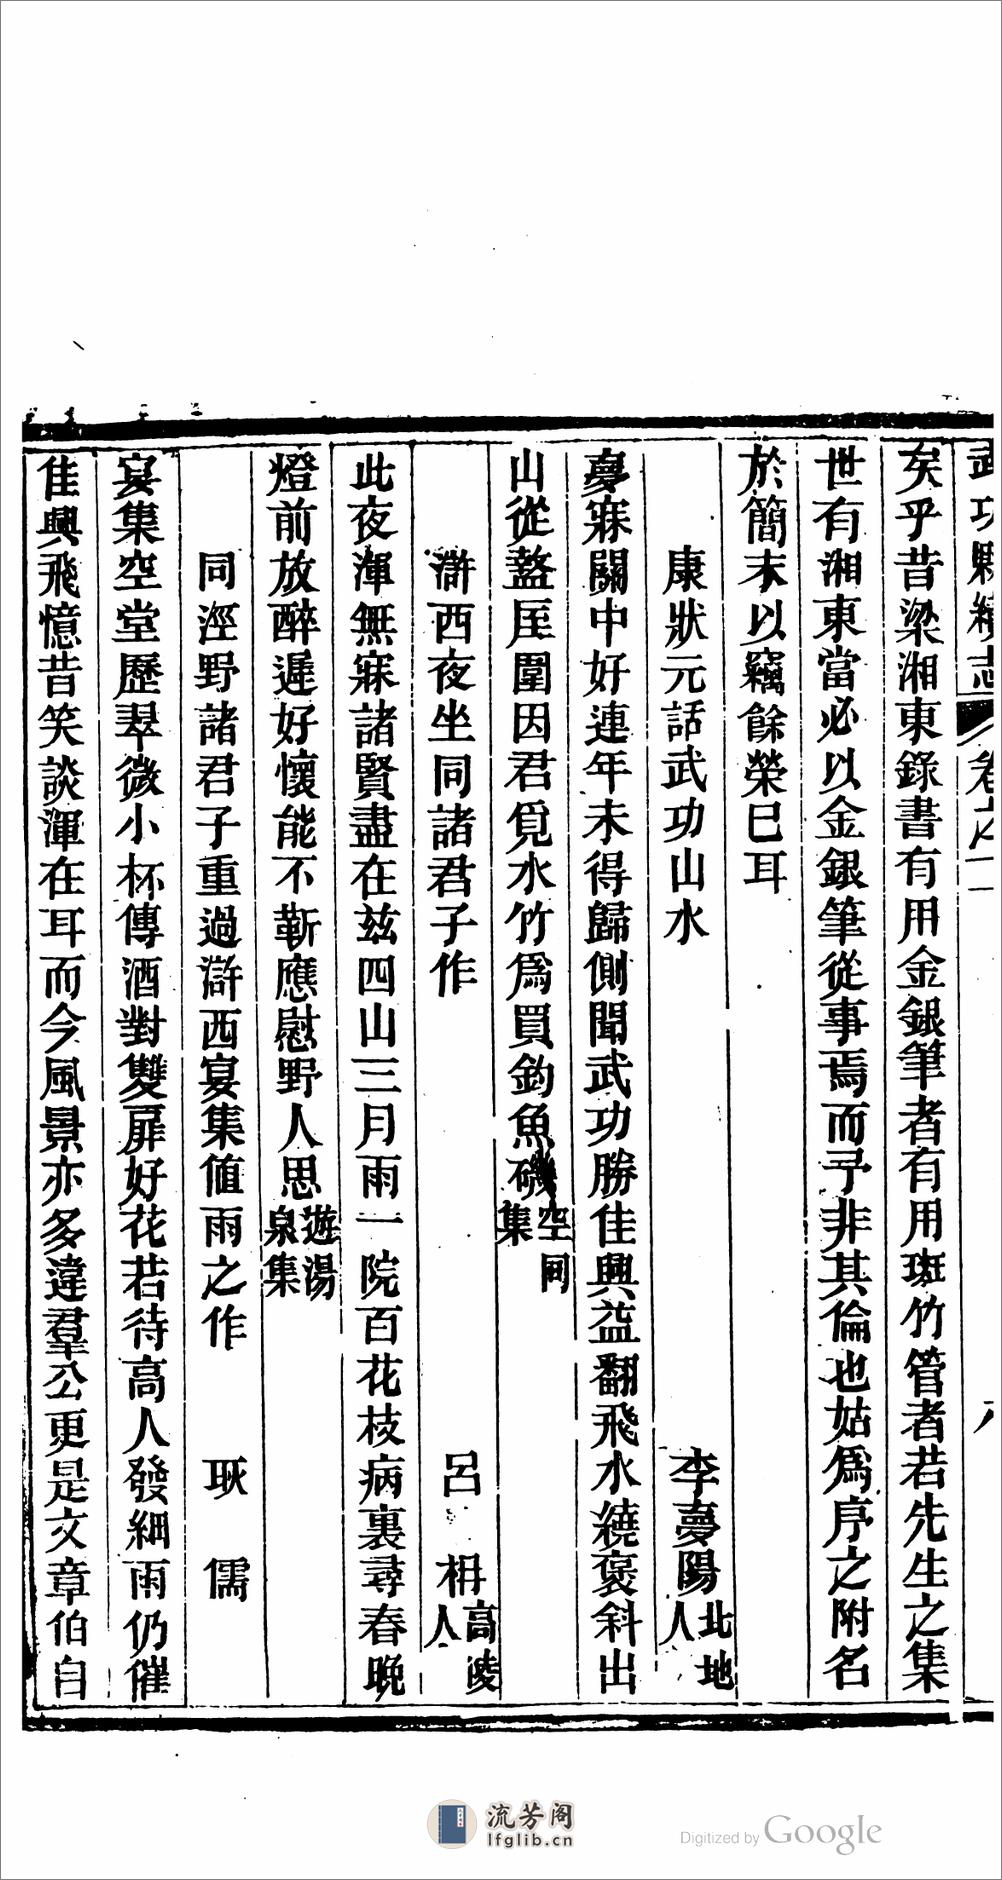 武功縣續志 卷之一 八
矣乎昔梁湘東錄書有用金銀筆者有用斑竹管者若先生之集
世有湘東當必以金銀筆從事焉而予非其倫也姑爲序之附名
於簡末以竊餘榮巳耳
康狀元話武功山水 李夢陽北地人
夢寐關中好連年未得歸側聞武功勝佳興益翻飛水繞褒斜出
山從盩厔圍因君覓水竹爲買釣魚磯空同集
滸西夜坐同諸君子作 呂柟高陵人
此夜渾無寐諸賢盡在兹四山三月雨一院百花枝病裏尋春晚
燈前放醉遲好懷能不靳應慰野人思遊湯泉集
同涇野諸君子重過滸西宴集值雨之作 耿儒
宴集空堂歷翠微小杯傳酒對雙扉好花若待高人發細雨仍催
佳興飛憶昔笑談渾在耳而今風景亦多違羣公更是文章伯自
流芳阁
lfglib.cn
Digitized by Google